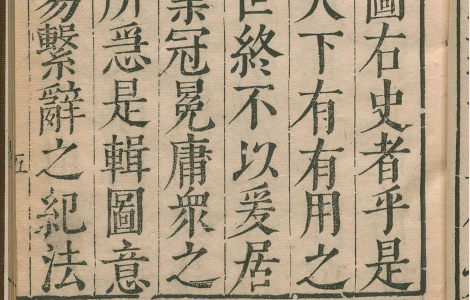 圖右史者乎是
下有有用之
世終不以爰居
冠冕庸衆之
所急是輯圖意
易繫辭之紀法
五